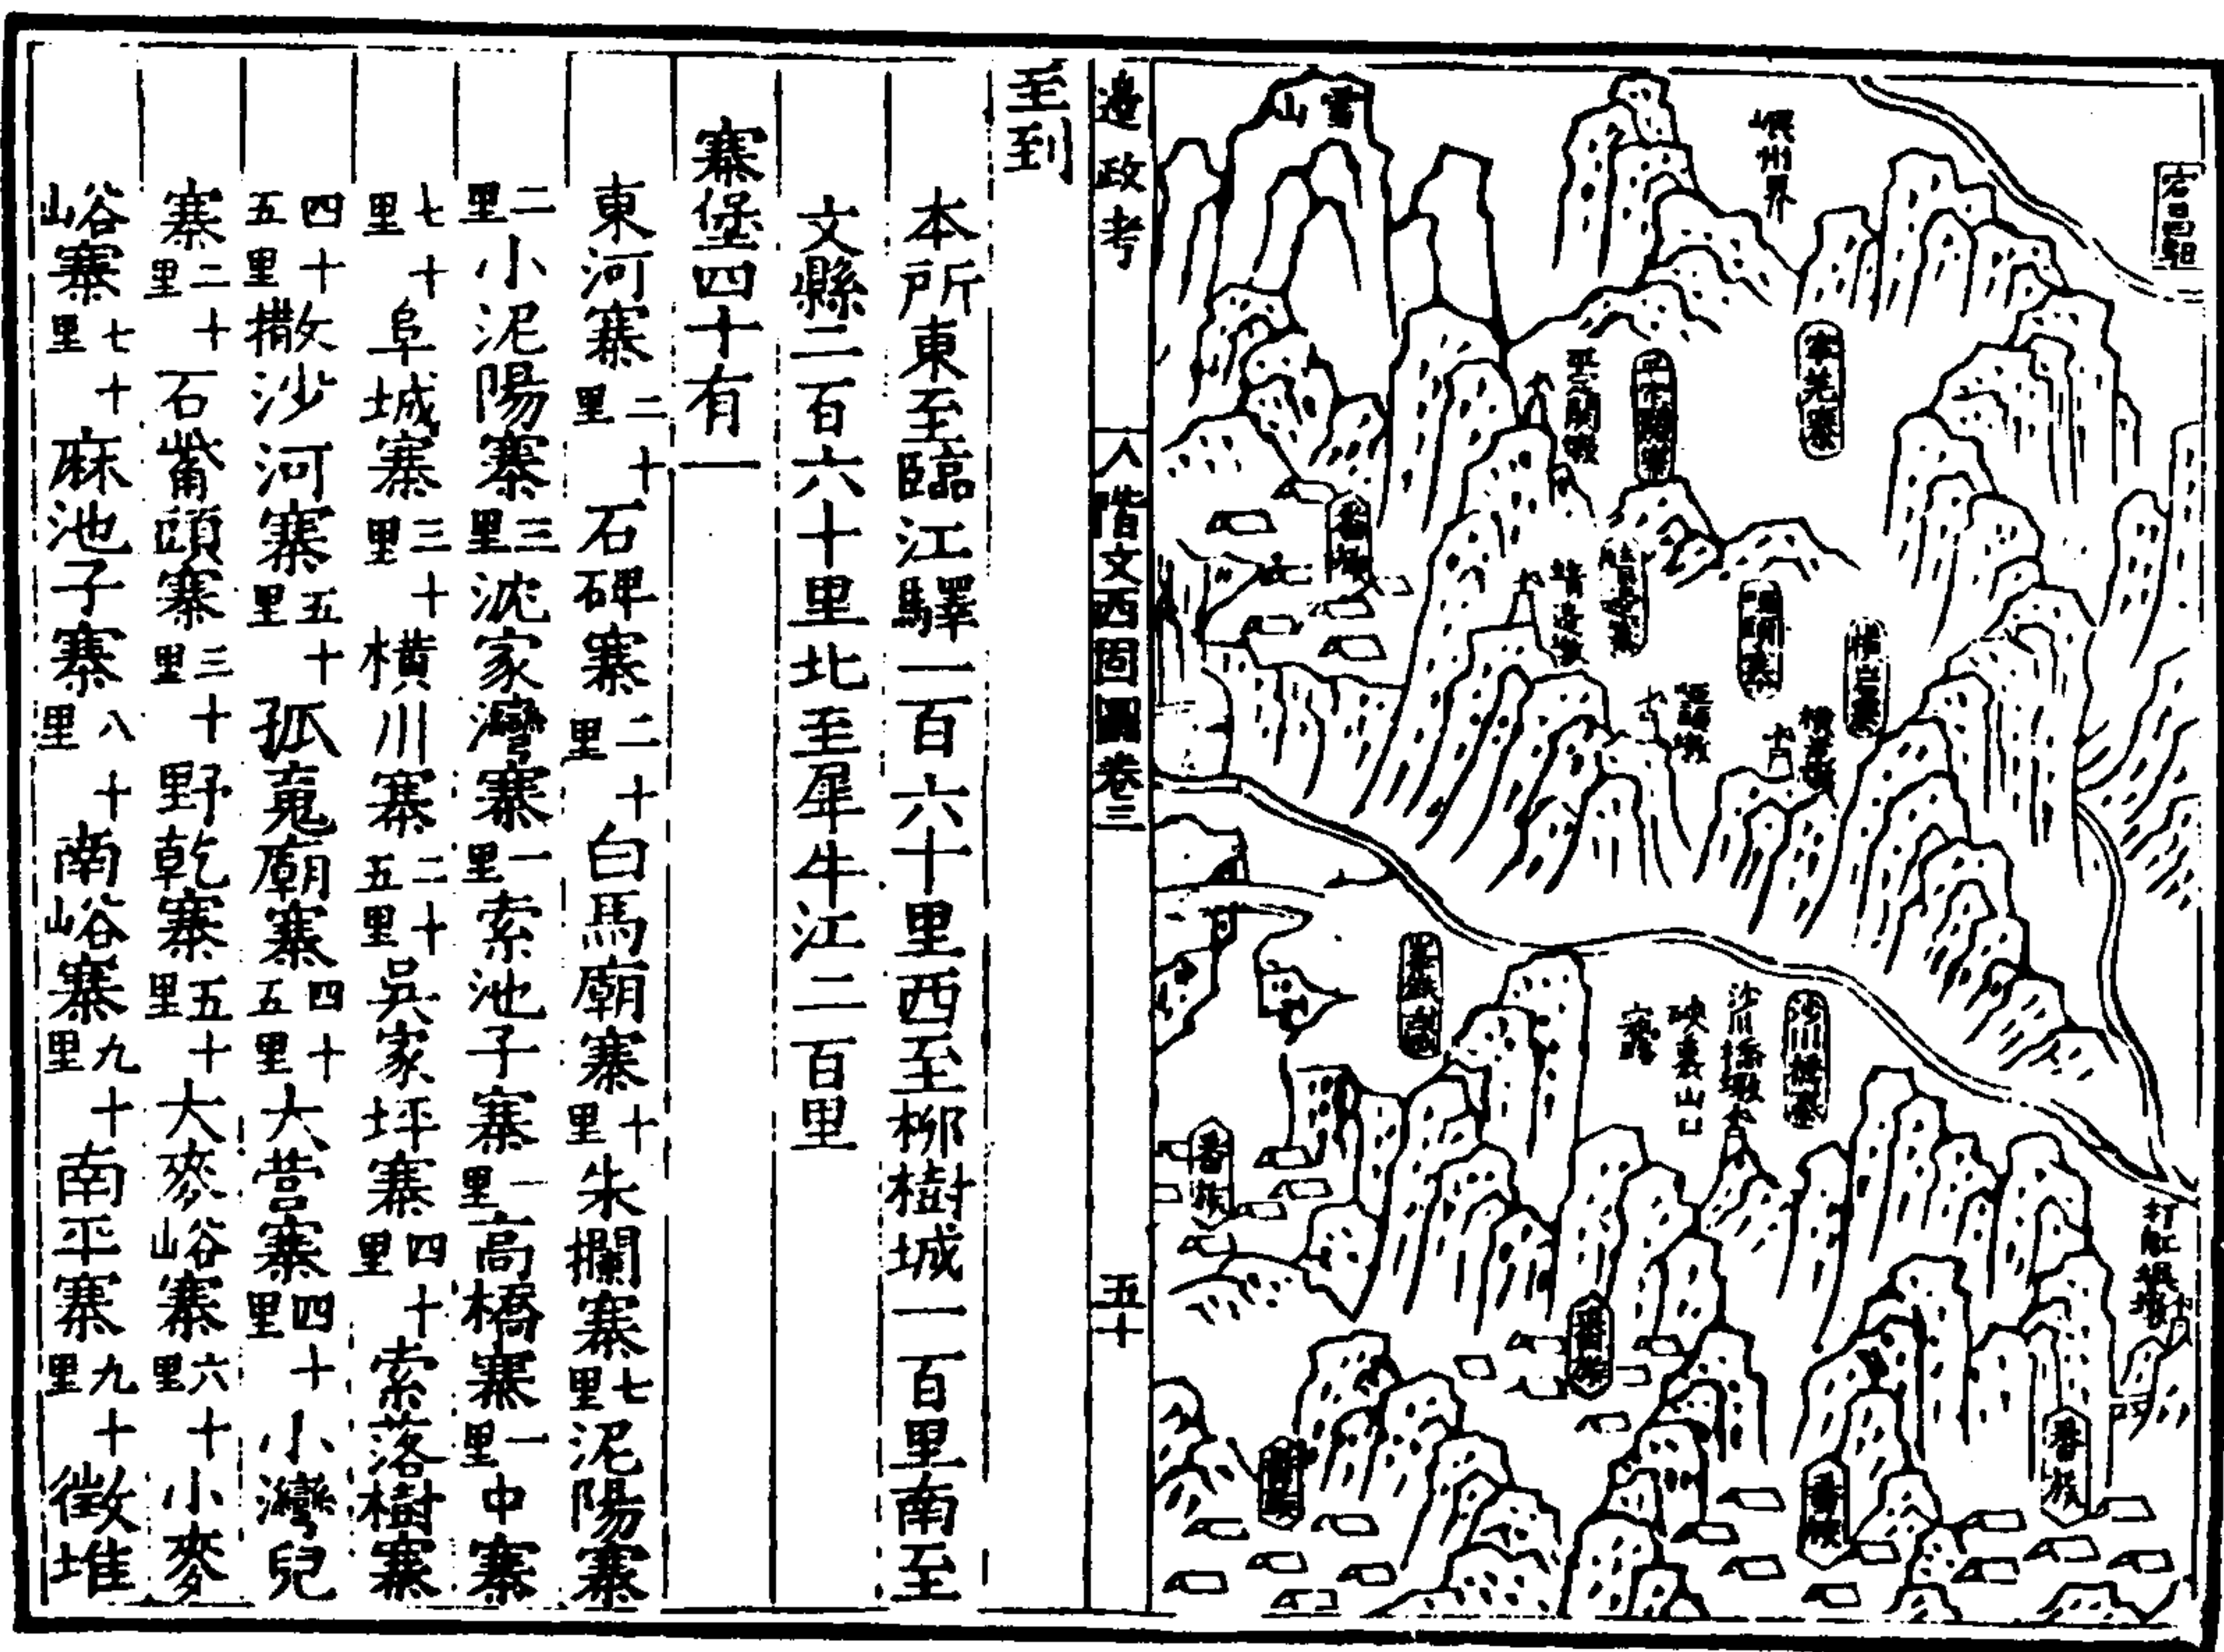 宕昌驛
岷州界
雪山
寧羌寨
平定關墩
番族
靖邊墩
沙川橋寨
沙川橋墩
硤裏山口
番族
番族
番族
邊政考
階文西固圖卷三
五十
至到
本所東至臨江驛一百六十里西至柳樹城一百里南至
文縣二百六十里北至犀牛江二百里
寨堡四十有一
東河寨二十里石碑寨二十里白馬廟寨十里朱攔寨七里泥陽寨
二里小泥陽寨三里沈家灣寨一里索池子寨一里高橋寨一里中寨
七十里阜城寨三十里橫川寨二十五里吳家坪寨四十里索落樹寨
四十五里撒沙河寨五十里孤魂廟寨四十五里大營寨四十里小灣兒
寨二十里石觜頭寨三十里野乾寨五十里大麥峪寨六十里小麥
峪寨七十里麻池子寨八十里南峪寨九十里南平寨九十里徵堆